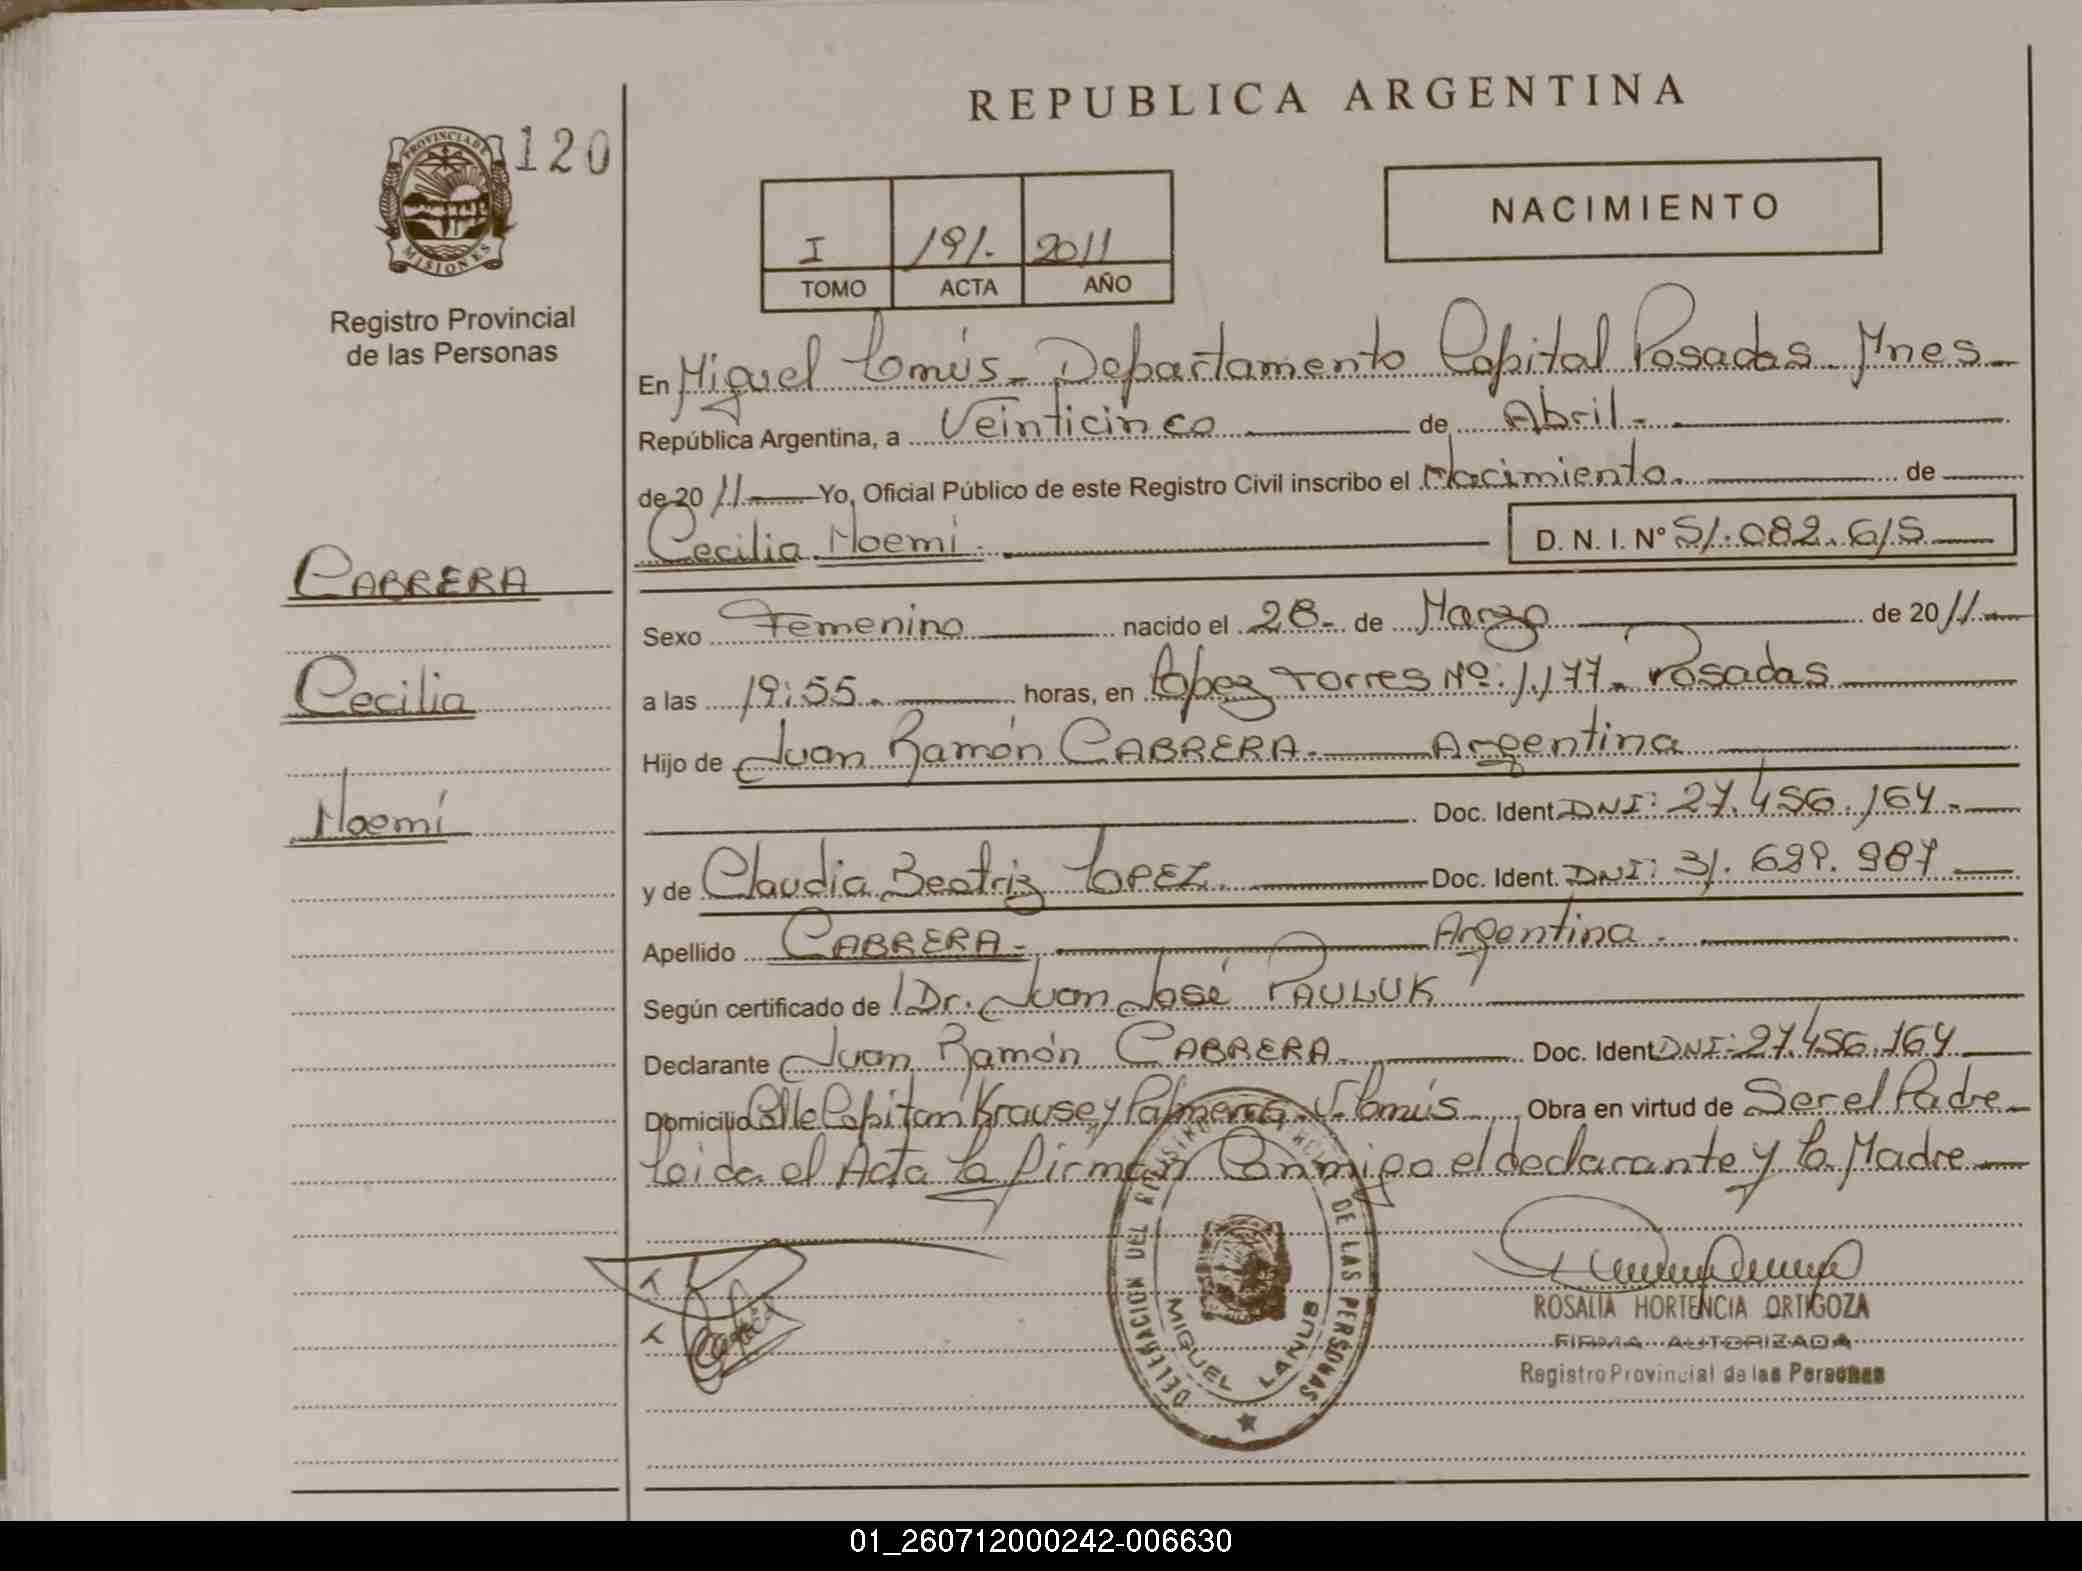 REPUBLICA ARGENTINA
PROVINCIA DE
MISIONES
120
Registro Provincial
de las Personas
I 191. 2011
TOMO ACTA AÑO
NACIMIENTO
En Miguel Lanús - Departamento Capital Posadas - Mnes -
República Argentina, a Veinticinco de Abril -
de 2011 Yo, Oficial Público de este Registro Civil inscribo el Nacimiento. de
Cecilia Noemí. D. N. I. Nº 51.082.615
CABRERA
Cecilia
Noemí
Sexo Femenino nacido el 28- de Marzo de 2011
a las 19:55. horas, en López Torres Nº: 1.177 - Posadas
Hijo de Juan Ramón CABRERA - Argentina
Doc. Ident. DNI: 27.456.164 -
y de Claudia Beatriz LOPEZ. Doc. Ident. DNI: 31.699.987
Apellido CABRERA - Argentina -
Según certificado de Dr. Juan José PAULUK
Declarante Juan Ramón CABRERA - Doc. Ident DNI: 27.456.164
Domicilio Calle Capitán Krause y Palmeras Obra en virtud de Ser el Padre -
Leída el Acta la firman Conmigo el declarante y la Madre -
DELEGACION DEL REGISTRO PROVINCIAL DE LAS PERSONAS
MIGUEL LANUS
ROSALIA HORTENCIA ORTIGOZA
FIRMA AUTORIZADA
Registro Provincial de las Personas
01_260712000242-006630